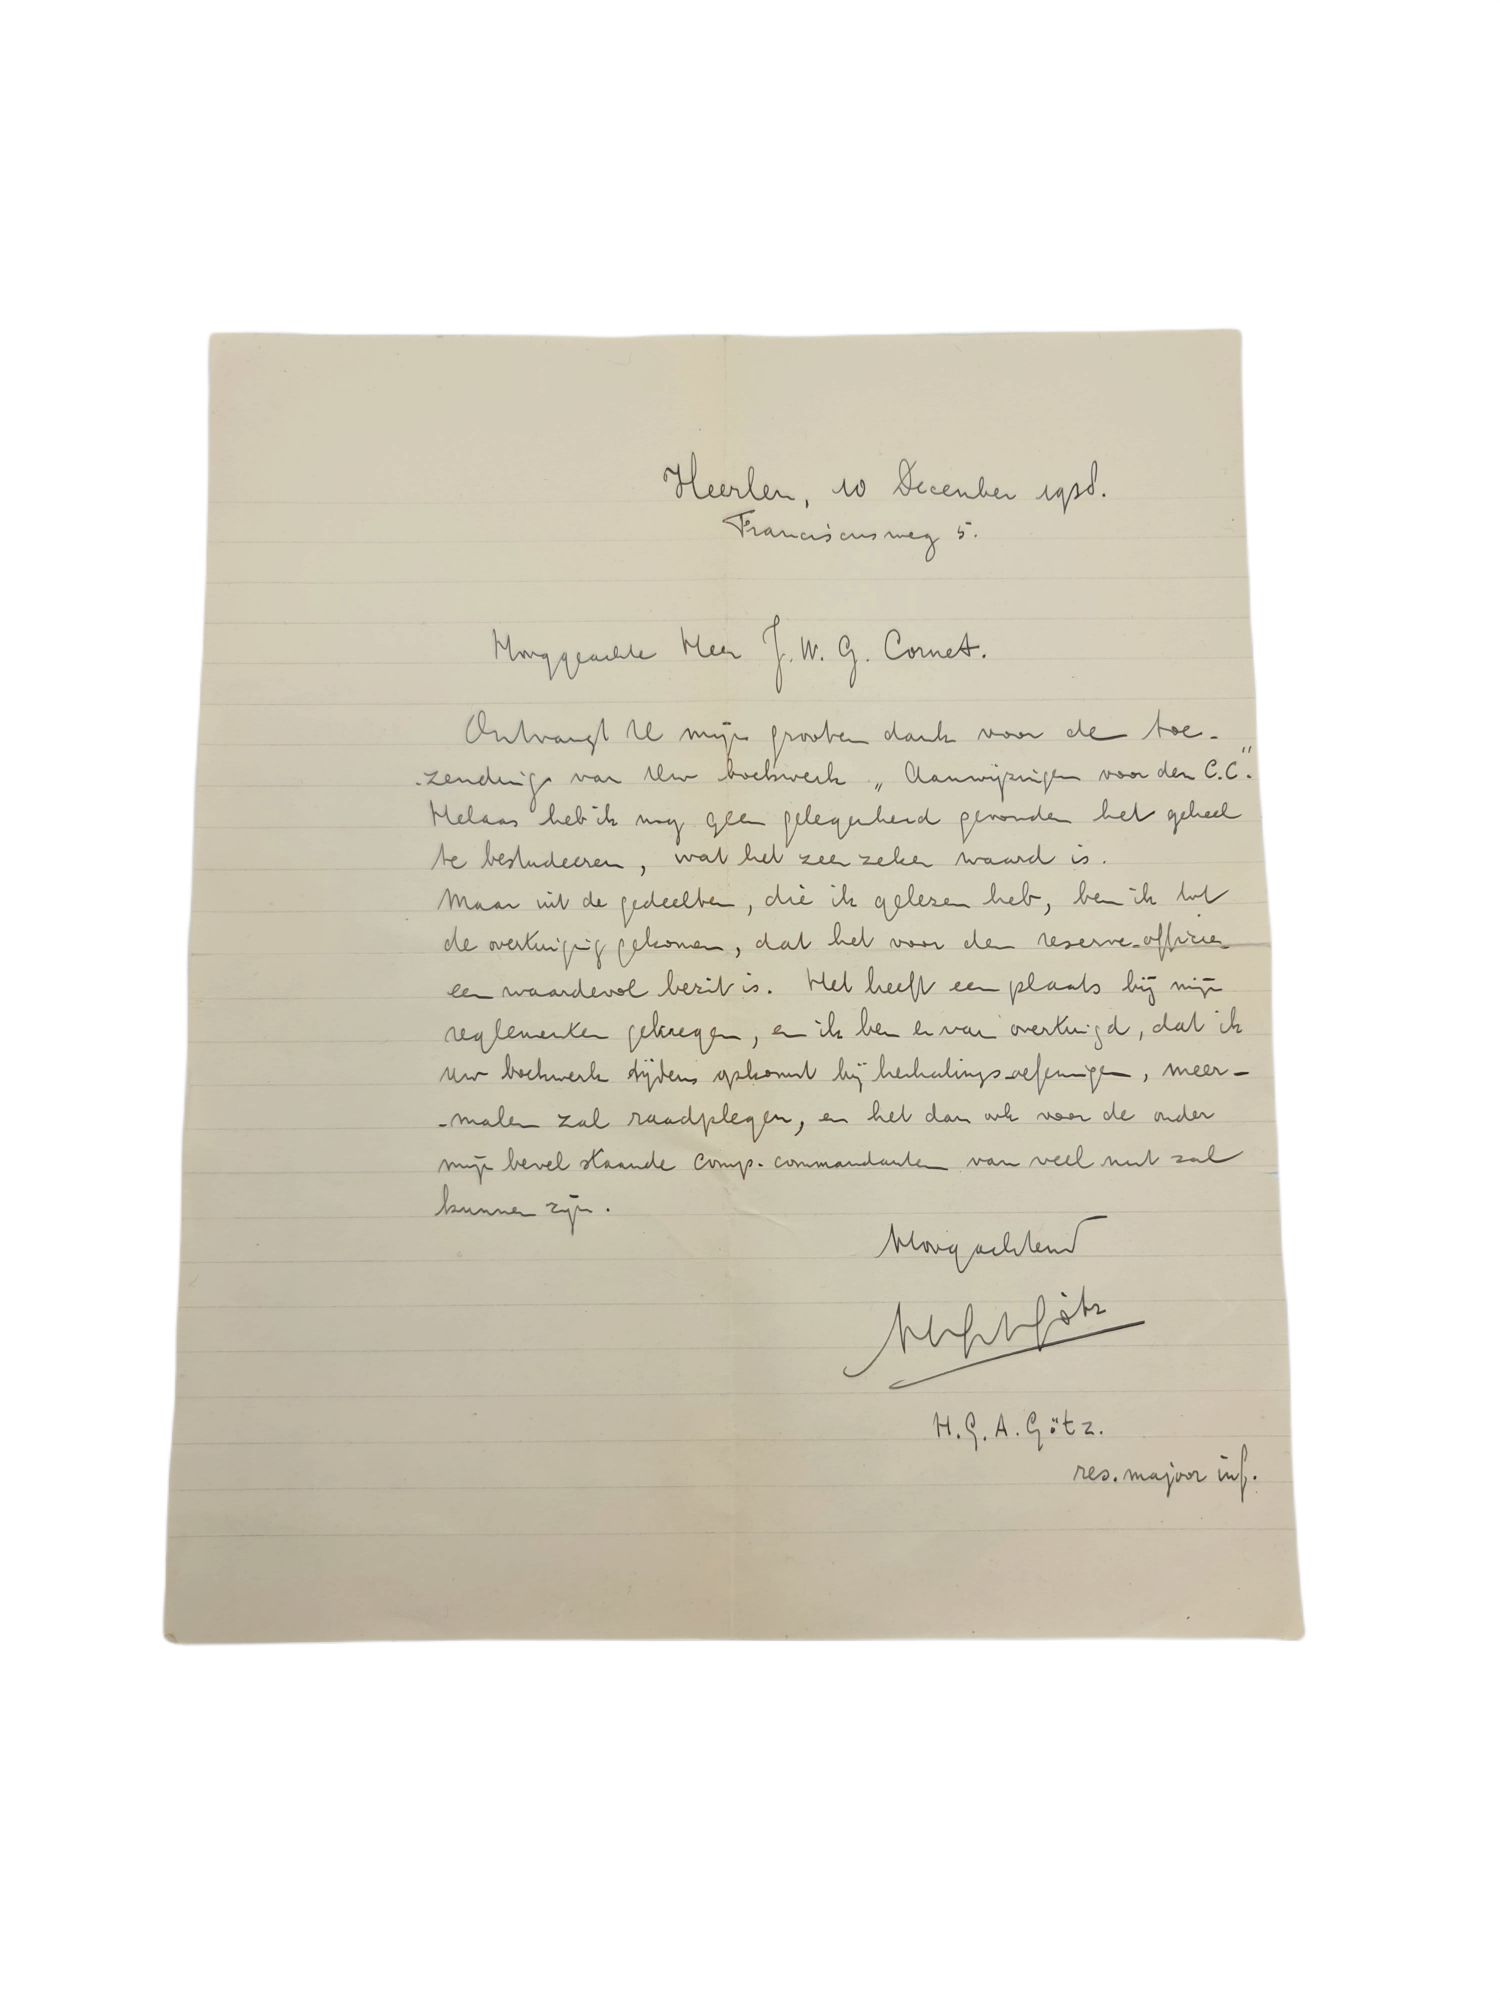 Heerlen, 10 December 1938.
Franciscusweg 5.
Hooggeachte Heer J. W. G. Cornet.
Ontvangt U mijn grooten dank voor de toe-
-zending van Uw boekwerk „Aanwijzingen voor den C.C."
Helaas heb ik nog geen gelegenheid gevonden het geheel
te bestudeeren, wat het zeer zeker waard is.
Maar uit de gedeelten, die ik gelezen heb, ben ik tot
de overtuiging gekomen, dat het voor den reserve-officier
een waardevol bezit is. Het heeft een plaats bij mijn
reglementen gekregen, en ik ben er van overtuigd, dat ik
Uw boekwerk tijdens opkomst bij herhalings-oefeningen, meer-
-malen zal raadplegen, en het dan ook voor de onder
mijn bevel staande comp. commandanten van veel nut zal
kunnen zijn.
Hoogachtend
HGAGötz
H. G. A. Götz.
res. majoor inf.